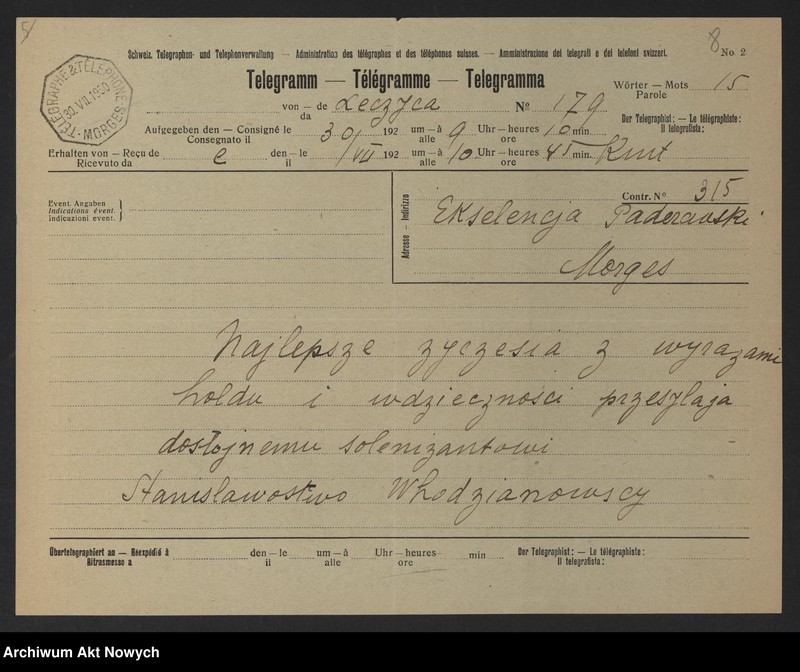 5/
8
Schweiz. Telegraphen- und Telephonverwaltung — Administration des télégraphes et des téléphones suisses. — Amministrazione dei telegrafi e dei telefoni svizzeri.
No 2
Telegramm — Télégramme — Telegramma
Wörter — Mots 15
Parole
TÉLÉGRAPHE & TÉLÉPHONES
30.VII.1930
TÉL. MORGES
von — de Leczyca No 179
da
Der Telegraphist: — Le télégraphiste:
Il telegrafista:
Aufgegeben den — Consigné le 30/ 192 um — à 9 Uhr — heures 10 min.
Consegnato il alle ore
Erhalten von — Reçu de e den — le /VII 192 um — à 10 Uhr — heures 45 min. Kurt
Ricevuto da il alle ore
Event. Angaben
Indications évent.
Indicazioni event.
Adresse — Indirizzo
Contr. No 315
Ekselencja Paderawski
Morges
Najlepsze zyczesia z wyrazami
holdu i wdziecznosci przesylaja
dostojnemu solenizantowi
Stanislawostwo Whodzianowscy
Übertelegraphiert an — Réexpédié à den — le um — à Uhr — heures min Der Telegraphist: — Le télégraphiste:
Ritrasmesso a il alle ore Il telegrafista:
Archiwum Akt Nowych